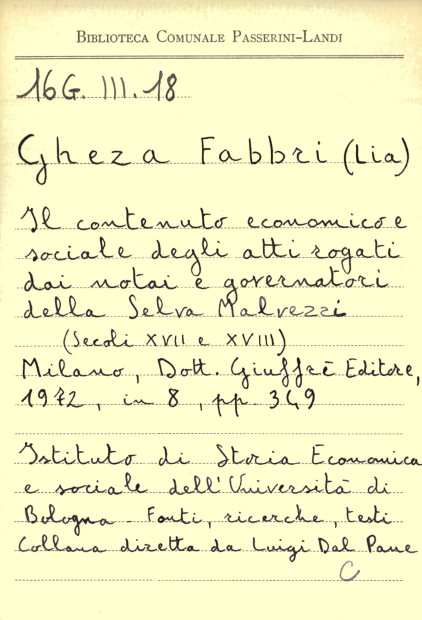 BIBLIOTECA COMUNALE PASSERINI-LANDI
16G. III. 18
Gheza Fabbri (Lia)
Il contenuto economico e
sociale degli atti rogati
dai notai e governatori
della Selva Malvezzi
(Secoli XVII e XVIII)
Milano, Dott. Giuffrè Editore,
1972, in 8, pp. 349
Istituto di Storia Economica
e sociale dell'Università di
Bologna - Fonti, ricerche, testi
Collana diretta da Luigi Dal Pane
C